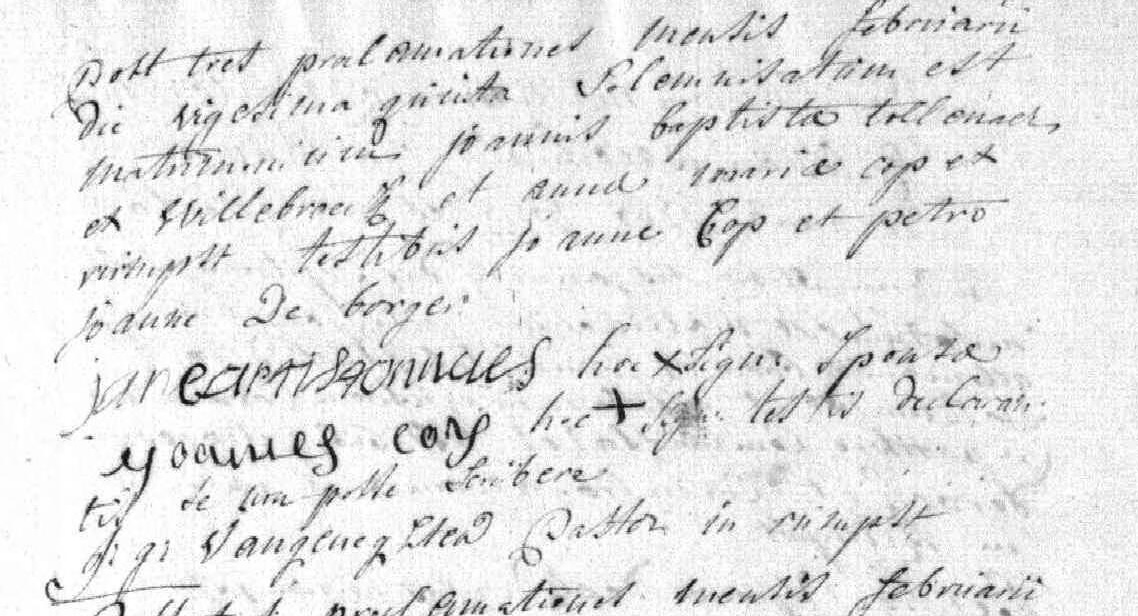 Post tres proclamationes mensis februarii
die vigesima quinta Solemnisatum est
matrimonium joannis baptista tollenaer
ex Willebroeck et anna maria cop ex
rumpst testibus joanne Cop et petro
joanne De borger
hoc x Signu Sponsa
joannes cop hoc + Sign testis declaran
tis se non posse scribere
Pastor in rumpst
proclamationes mensis februarii